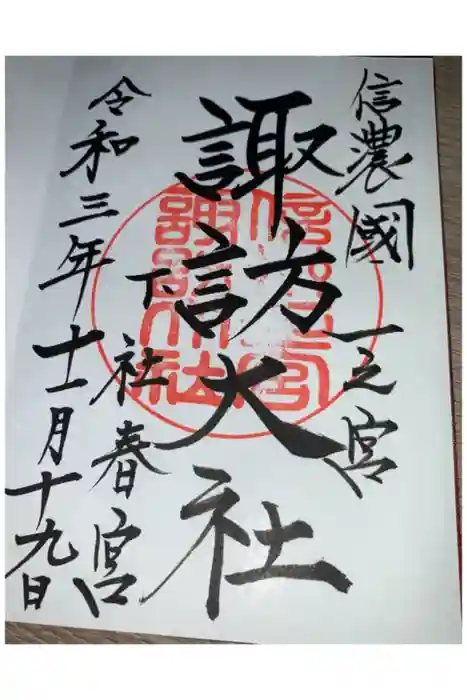 信濃國一之宮
諏訪大社
下社春宮
令和三年十二月十九日